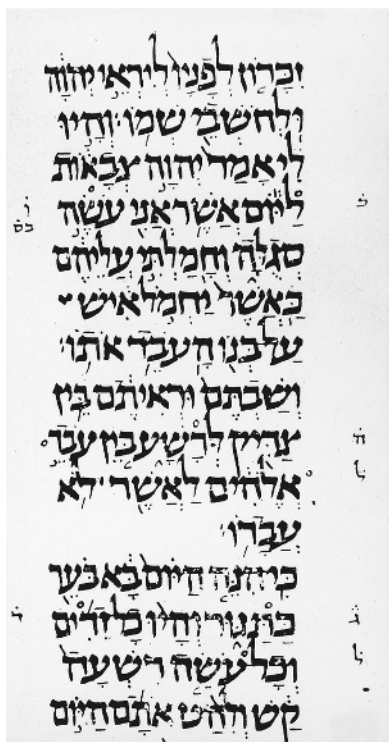 זכרון לפניו ליראי יהוה
ולחשבי שמו והיו
לי אמר יהוה צבאות
ליום אשר אני עשה
סגלה וחמלתי עליהם
כאשר יחמל איש
על בנו העבד אתו
ושבתם וראיתם בין
צדיק לרשע בין עבד
אלהים לאשר לא
עבדו
כי הנה היום בא בער
כתנור והיו כל זדים
וכל עשה רשעה
קש ולהט אתם היום